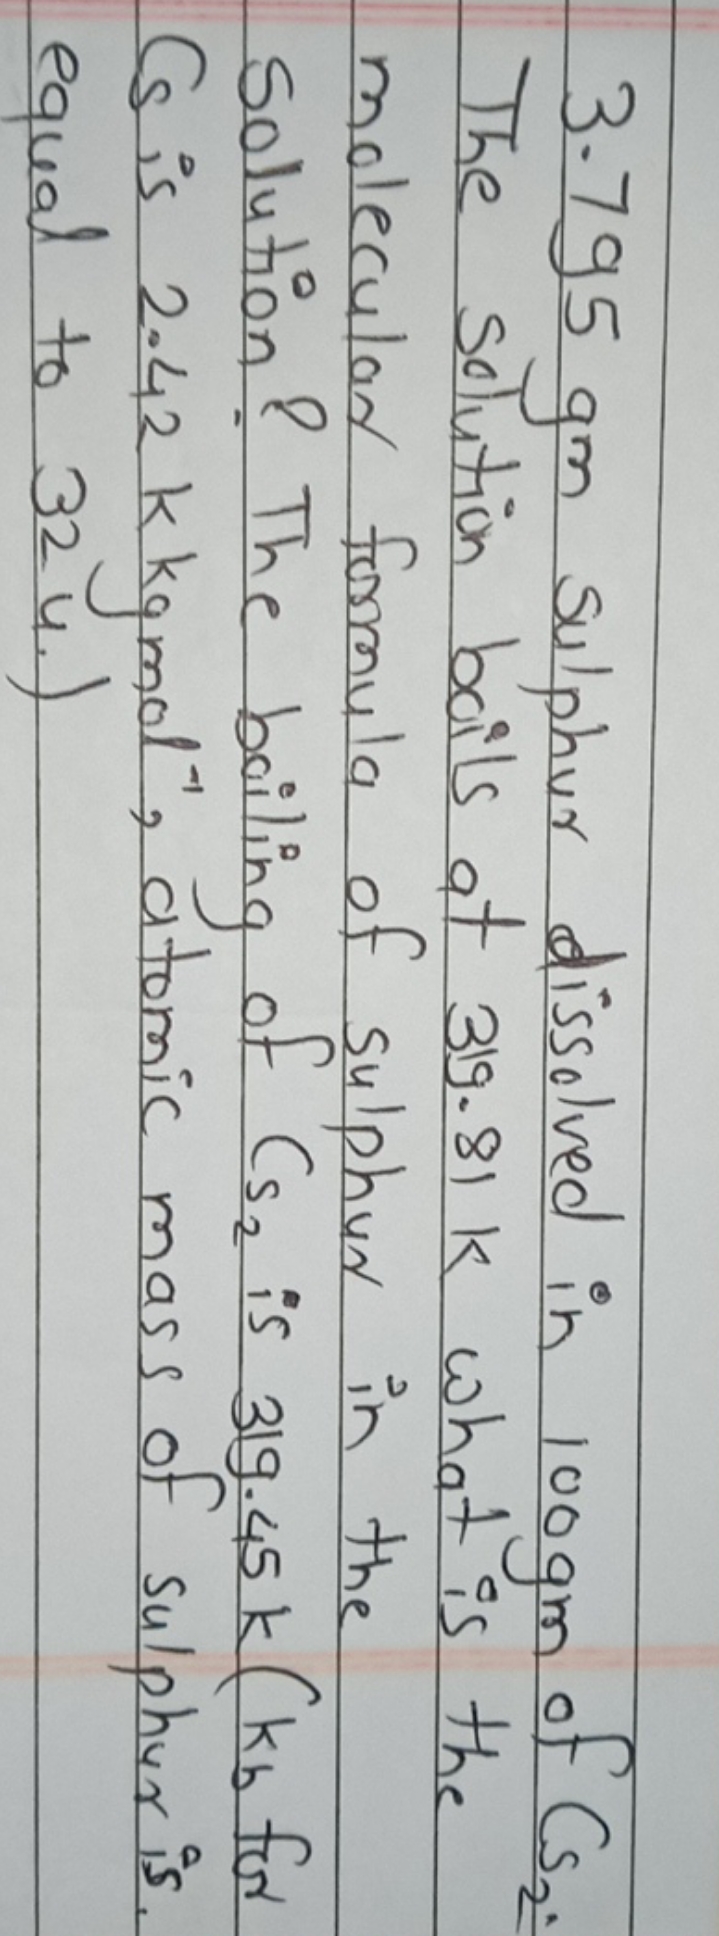 3.795 gm sulphur dissolved in 100gm of Cs2.
The solution boils at 319.81 k what is the
molecular formula of sulphur in the
solution? The boiling of Cs2 is 319.45 k (kb for
Cs is 2.42 k kgmol-1, atomic mass of sulphur is.
equal to 32 u.)